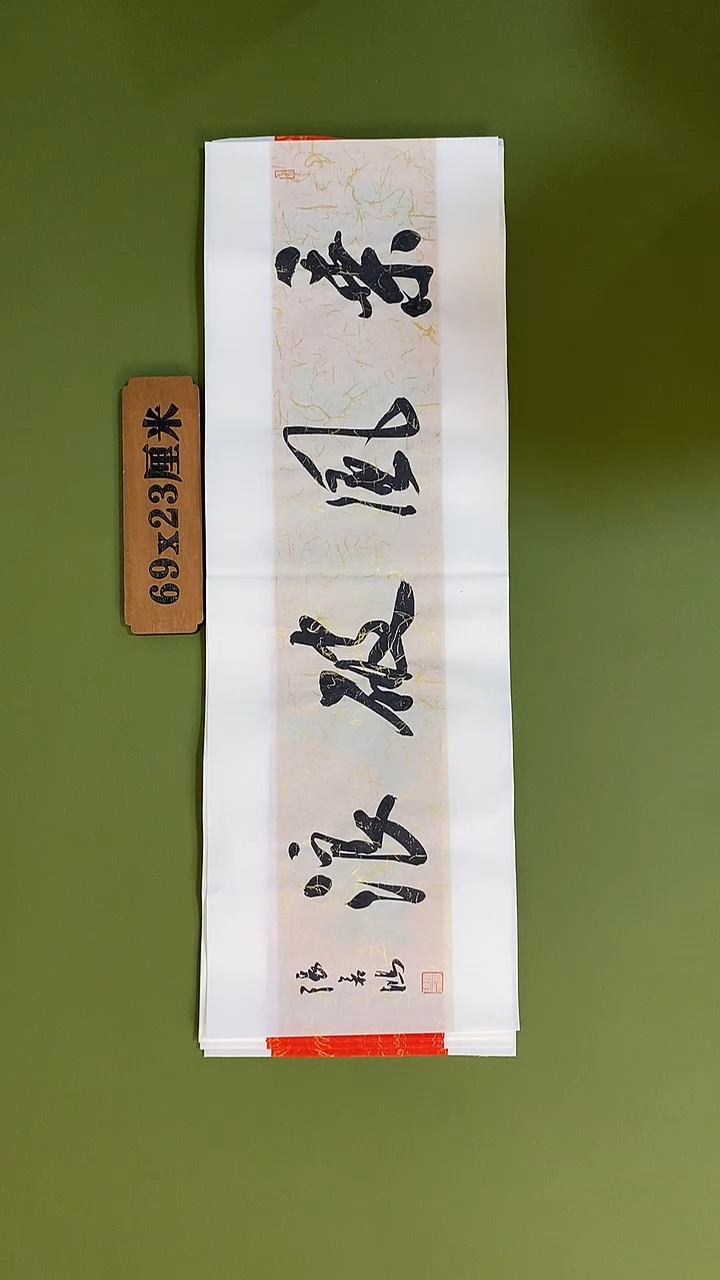 乘風破浪
69x23厘米